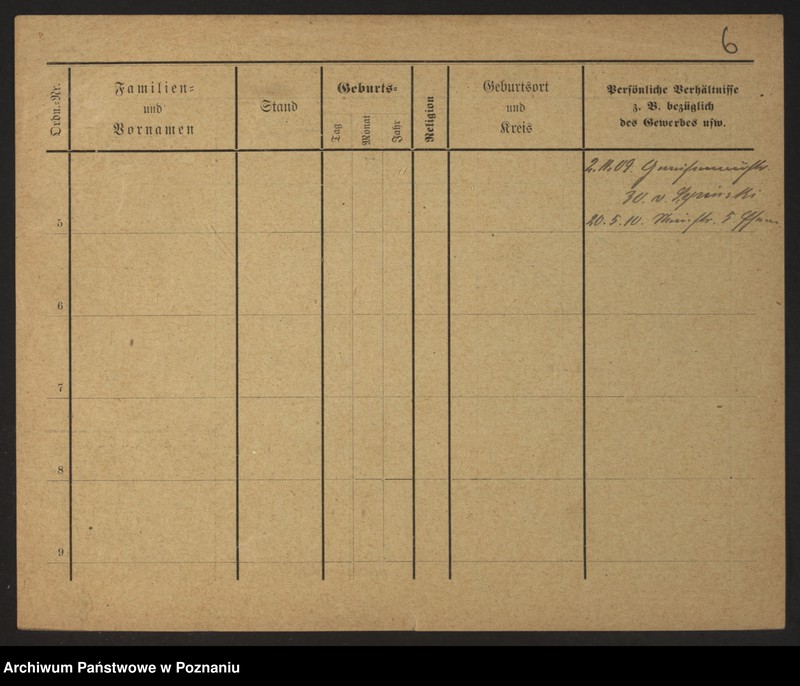 6
Ordn.-Nr.
Familien-
und
Vornamen
Stand
Geburts-
Tag
Monat
Jahr
Religion
Geburtsort
und
Kreis
Persönliche Verhältnisse
z. B. bezüglich
des Gewerbes usw.
2.11.09.
30 v.
5
20.5.10. 5
6
7
8
9
Archiwum Państwowe w Poznaniu